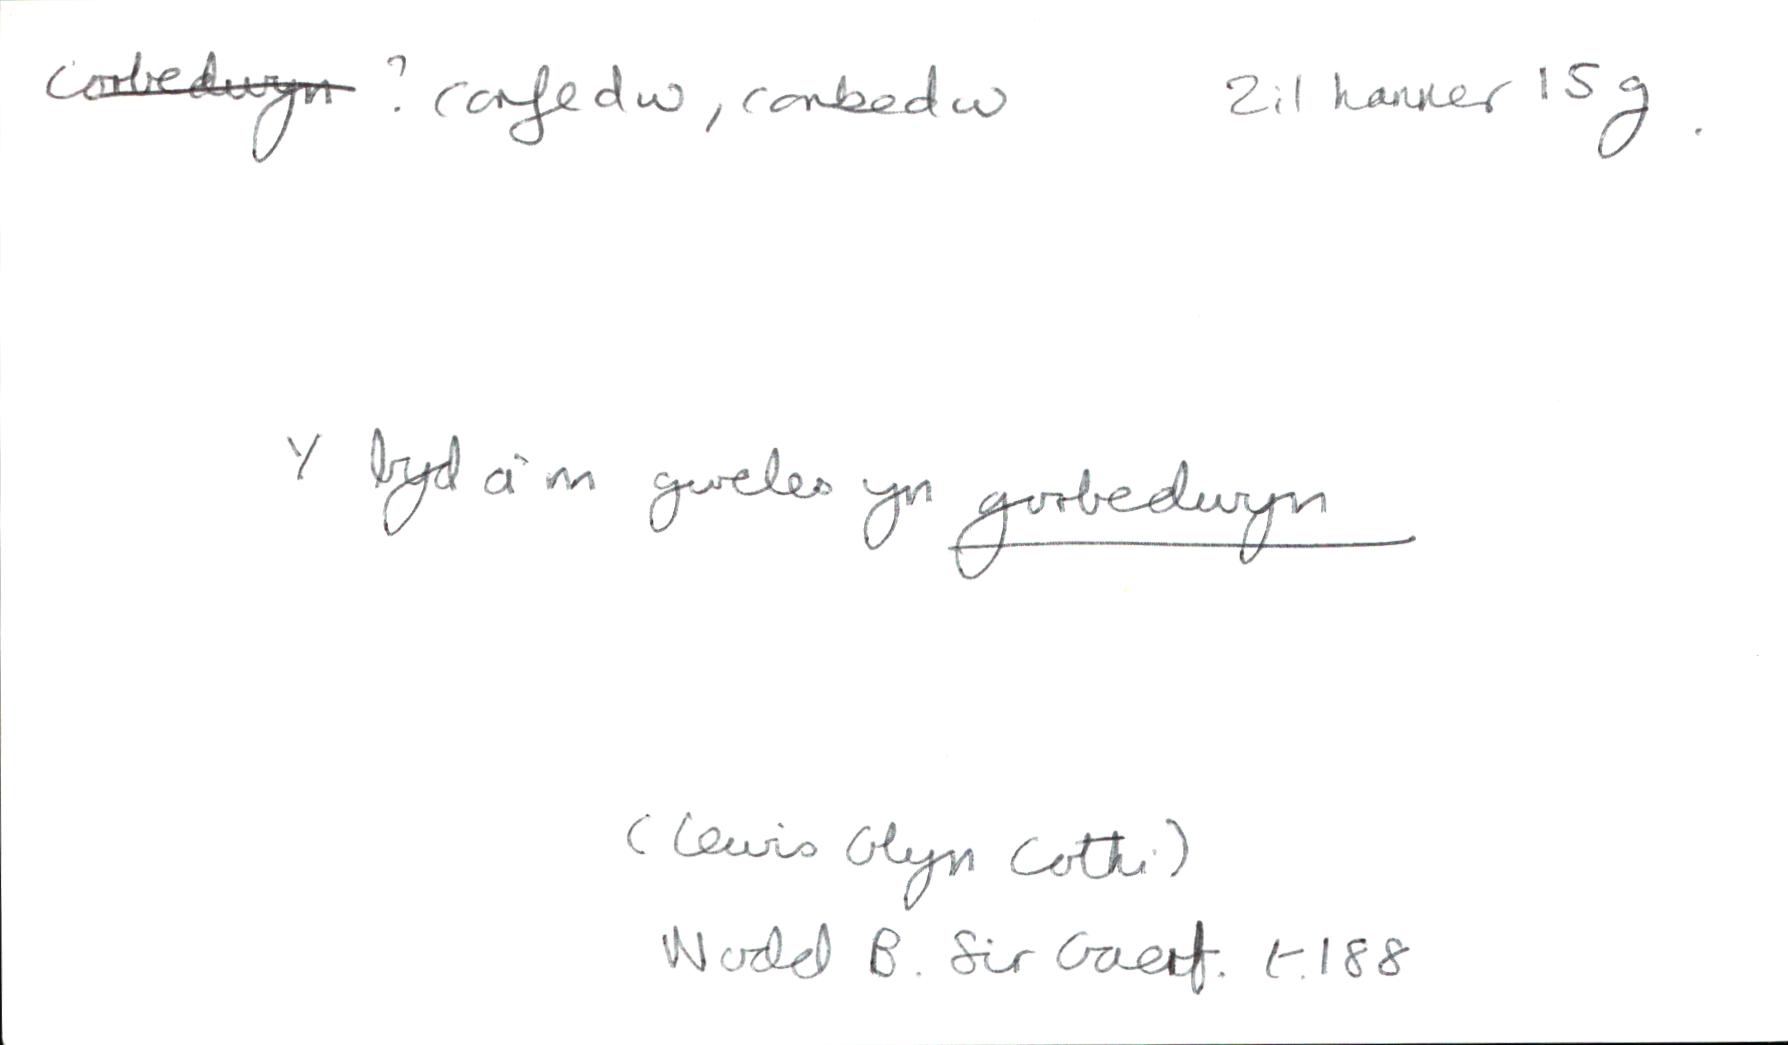 corbedwyn ? corfedw, corbedw 2il hanner 15g.
Y byd a'm gweles yn gorbedwyn
(Lewis Glyn Cothi)
Nodd B. Sir Gaerf. t.188